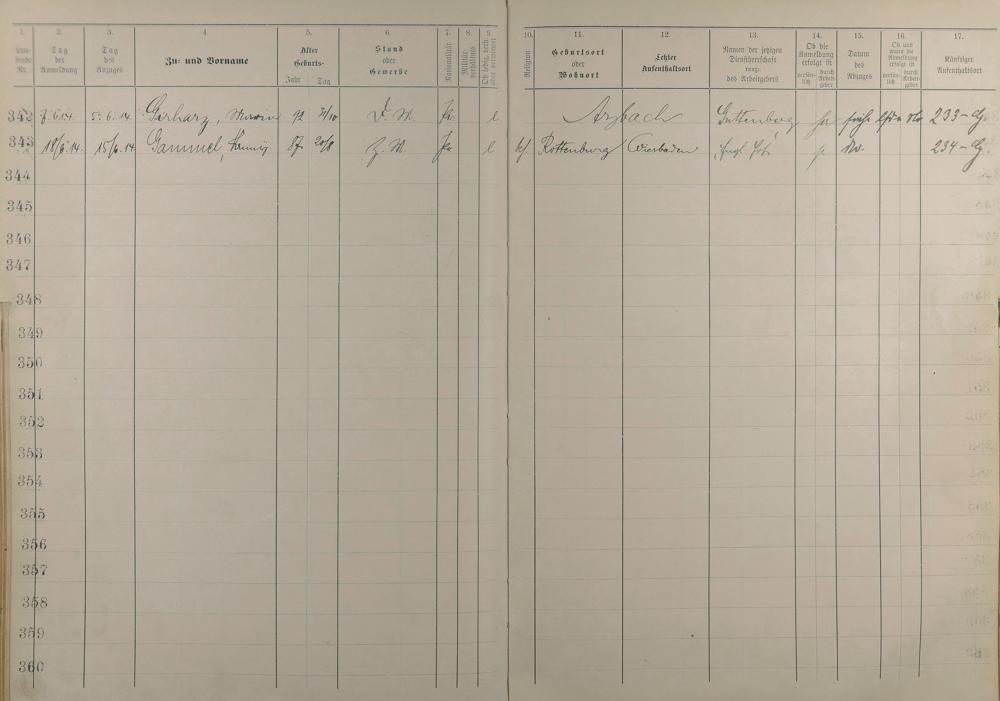 1. 2. 3. 4. 5. 6. 7. 8. 9. 10. 11. 12. 13. 14. 15. 16. 17.
Lau-fende Nr.
Tag der Anmeldung
Tag des Anzuges
Zu- und Vorname
Alter Geburts- Jahr Tag
Stand oder Gewerbe
Nationalität
Militär-verhältnis
Ob ledig, verh. oder verwitwet
Religion
Geburtsort oder Wohnort
Letzter Aufenthaltsort
Namen der jetzigen Dienstherrschaft resp. des Arbeitgebers
Ob die Anmeldung erfolgt ist persön-lich durch Arbeit-geber
Datum des Abzuges
Ob und wann die Abmeldung erfolgt ist persön-lich durch Arbeit-geber
Künftiger Aufenthaltsort
342 7.6.14. 5.6.14 Gerharz, 92 D.M. Pr. l Arzbach Guttenberg 233
343 18/6.14. 15/6.14 Gammel, 87 20/8 Z.M. Pr l Rottenburg Wiesbaden Engl. 234
344
345
346
347
348
349
350
351
352
353
354
355
356
357
358
359
360